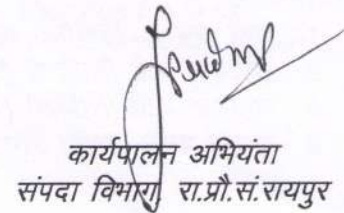 कार्यपालन अभियंता
संपदा विभाग रा.प्रौ.सं.रायपुर